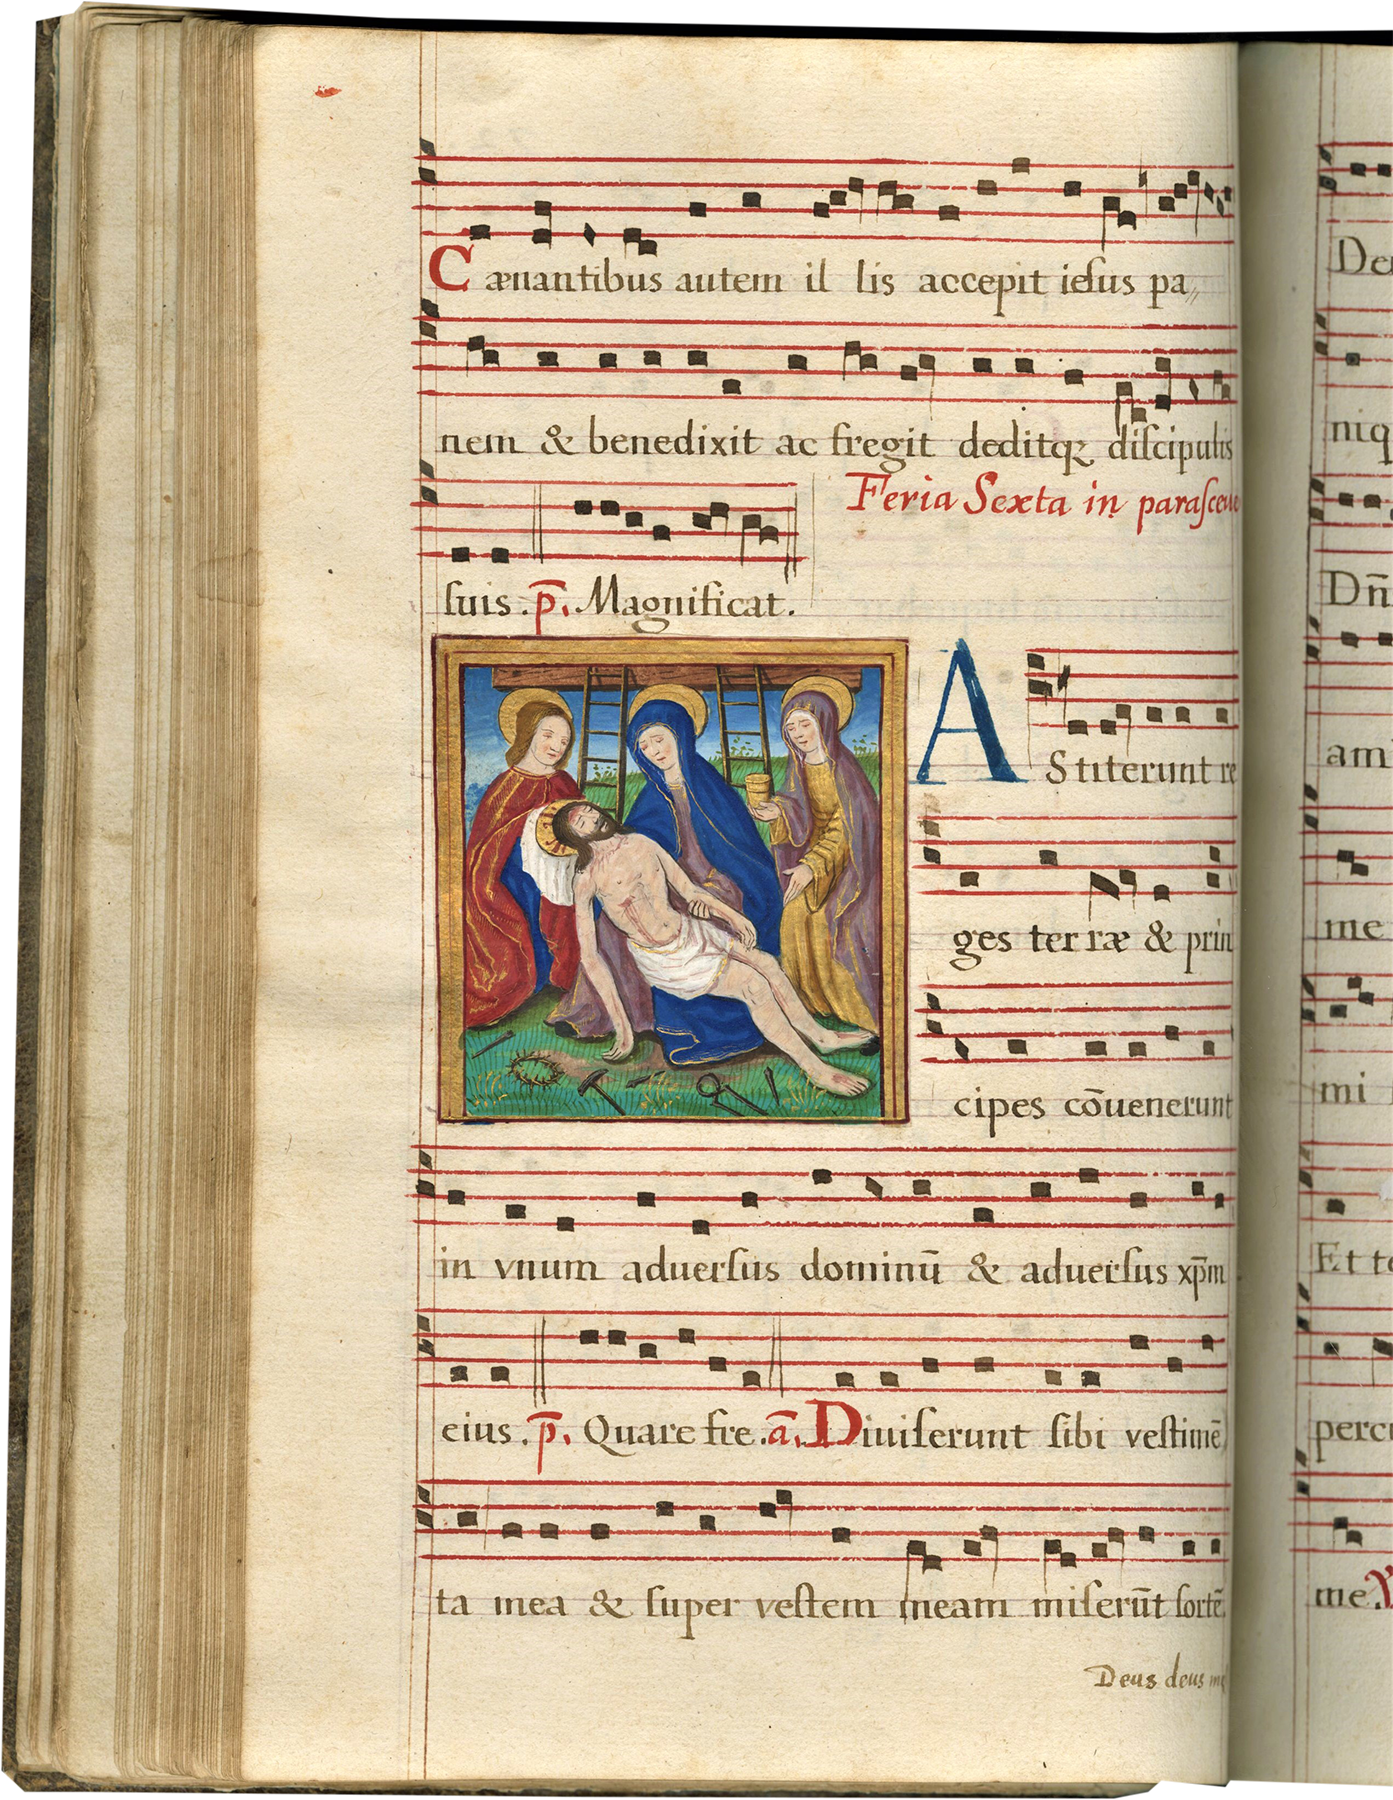 Cænantibus autem il lis accepit iesus pa
nem & benedixit ac fregit deditq; discipulis
Feria Sexta in parasceue
suis. p̄. Magnificat.
AStiterunt re
ges ter ræ & prin
cipes cōuenerunt
in vnum aduersus dominū & aduersus xp̄m
eius. p̄. Quare fre. ā. Diuiserunt sibi vestimē
ta mea & super vestem meam miserūt sortē.
Deus deus
niq
Dn̄
ami
me
mi
Et
me.